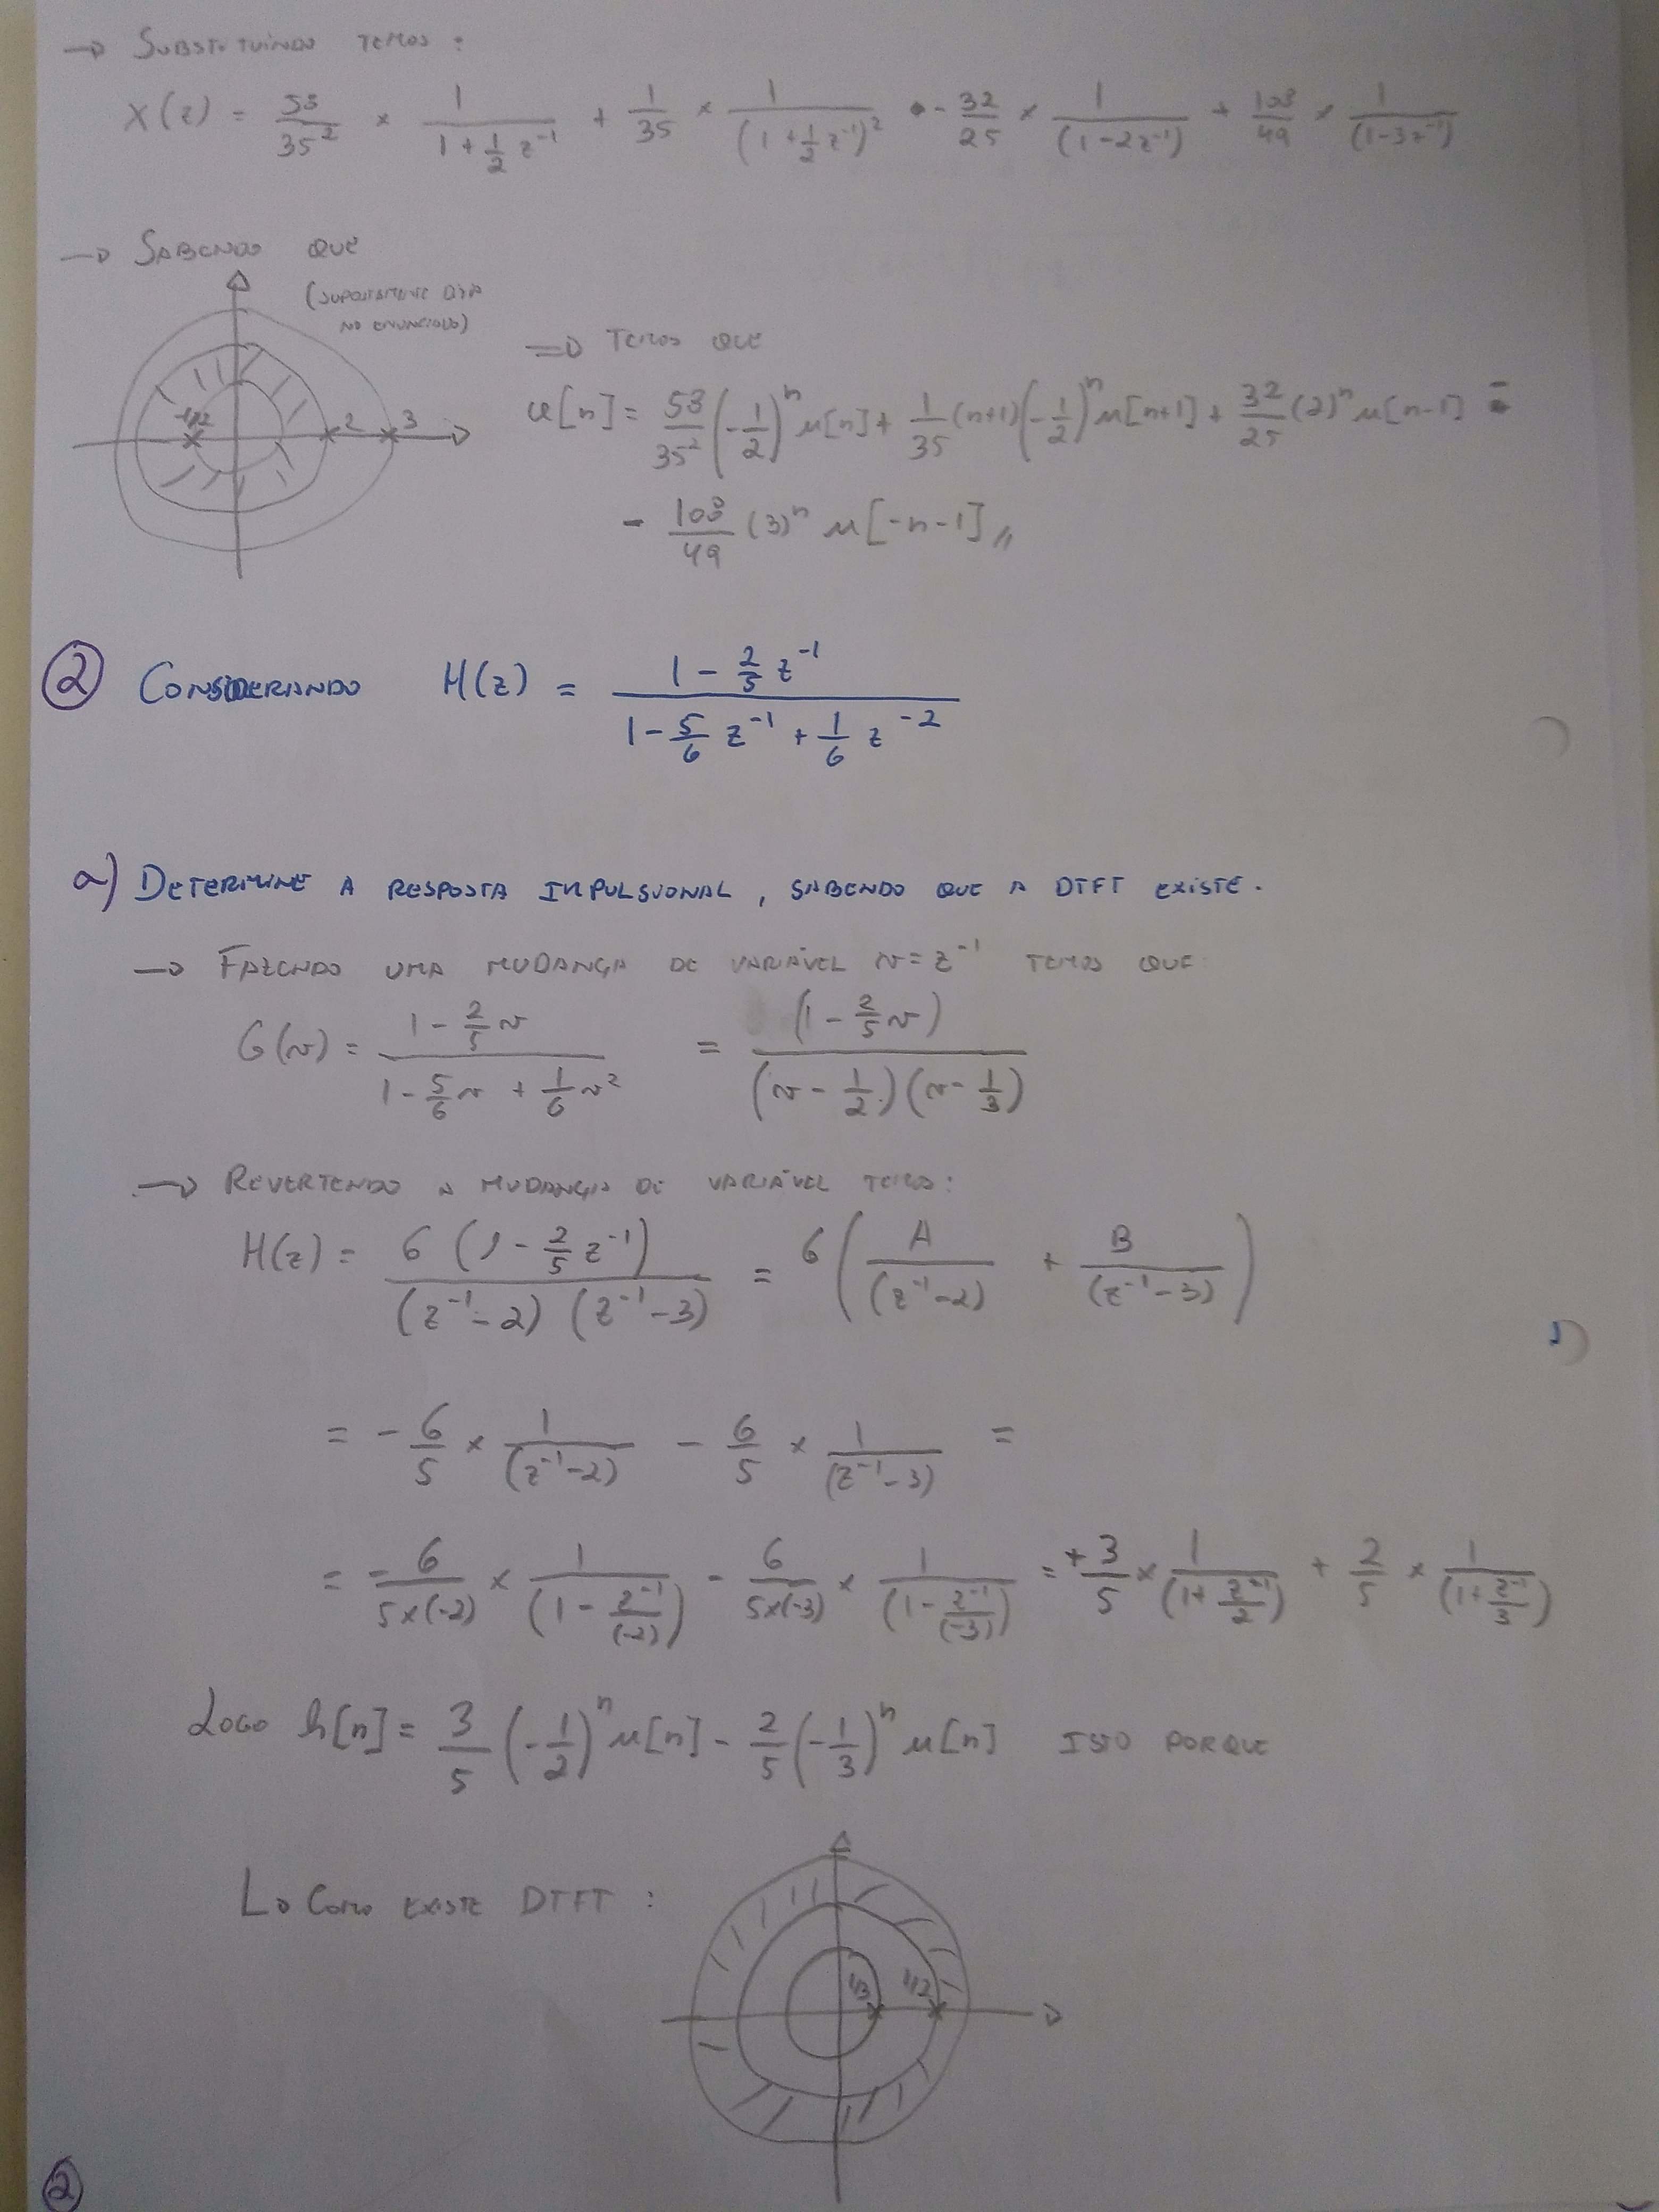 → SUBSTITUÍNDO TEMOS :
X(z) = 53/35² × 1/(1 + 1/2 z⁻¹) + 1/35 × 1/(1 + 1/2 z⁻¹)² - 32/25 × 1/(1-2z⁻¹) + 108/49 × 1/(1-3z⁻¹)
→ SABENDO QUE
(SUPOSTAMENTE DADA
NO ENUNCIADO)
-1/2 2 3
⇒ TEMOS QUE
x[n] = 53/35² (-1/2)ⁿ u[n] + 1/35 (n+1)(-1/2)ⁿ u[n+1] + 32/25 (2)ⁿ u[n-1] -
- 108/49 (3)ⁿ u[-n-1] //
② CONSIDERANDO H(z) = (1 - 2/5 z⁻¹)/(1 - 5/6 z⁻¹ + 1/6 z⁻²)
a) DETERMINE A RESPOSTA IMPULSIONAL, SABENDO QUE A DTFT EXISTE.
→ FAZENDO UMA MUDANÇA DE VARIÁVEL v = z⁻¹ TEMOS QUE:
G(v) = (1 - 2/5 v)/(1 - 5/6 v + 1/6 v²) = (1 - 2/5 v)/((v - 1/2)(v - 1/3))
→ REVERTENDO A MUDANÇA DE VARIÁVEL TEMOS:
H(z) = 6 (1 - 2/5 z⁻¹)/((z⁻¹-2) (z⁻¹-3)) = 6 (A/(z⁻¹-2) + B/(z⁻¹-3))
= - 6/5 × 1/(z⁻¹-2) - 6/5 × 1/(z⁻¹-3) =
= - 6/(5×(-2)) × 1/(1 - z⁻¹/(-2)) - 6/(5×(-3)) × 1/(1 - z⁻¹/(-3)) = + 3/5 × 1/(1 + z⁻¹/2) + 2/5 × 1/(1 + z⁻¹/3)
LOGO h[n] = 3/5 (-1/2)ⁿ u[n] - 2/5 (-1/3)ⁿ u[n] ISTO PORQUE
↳ COMO EXISTE DTFT :
1/3 1/2
②